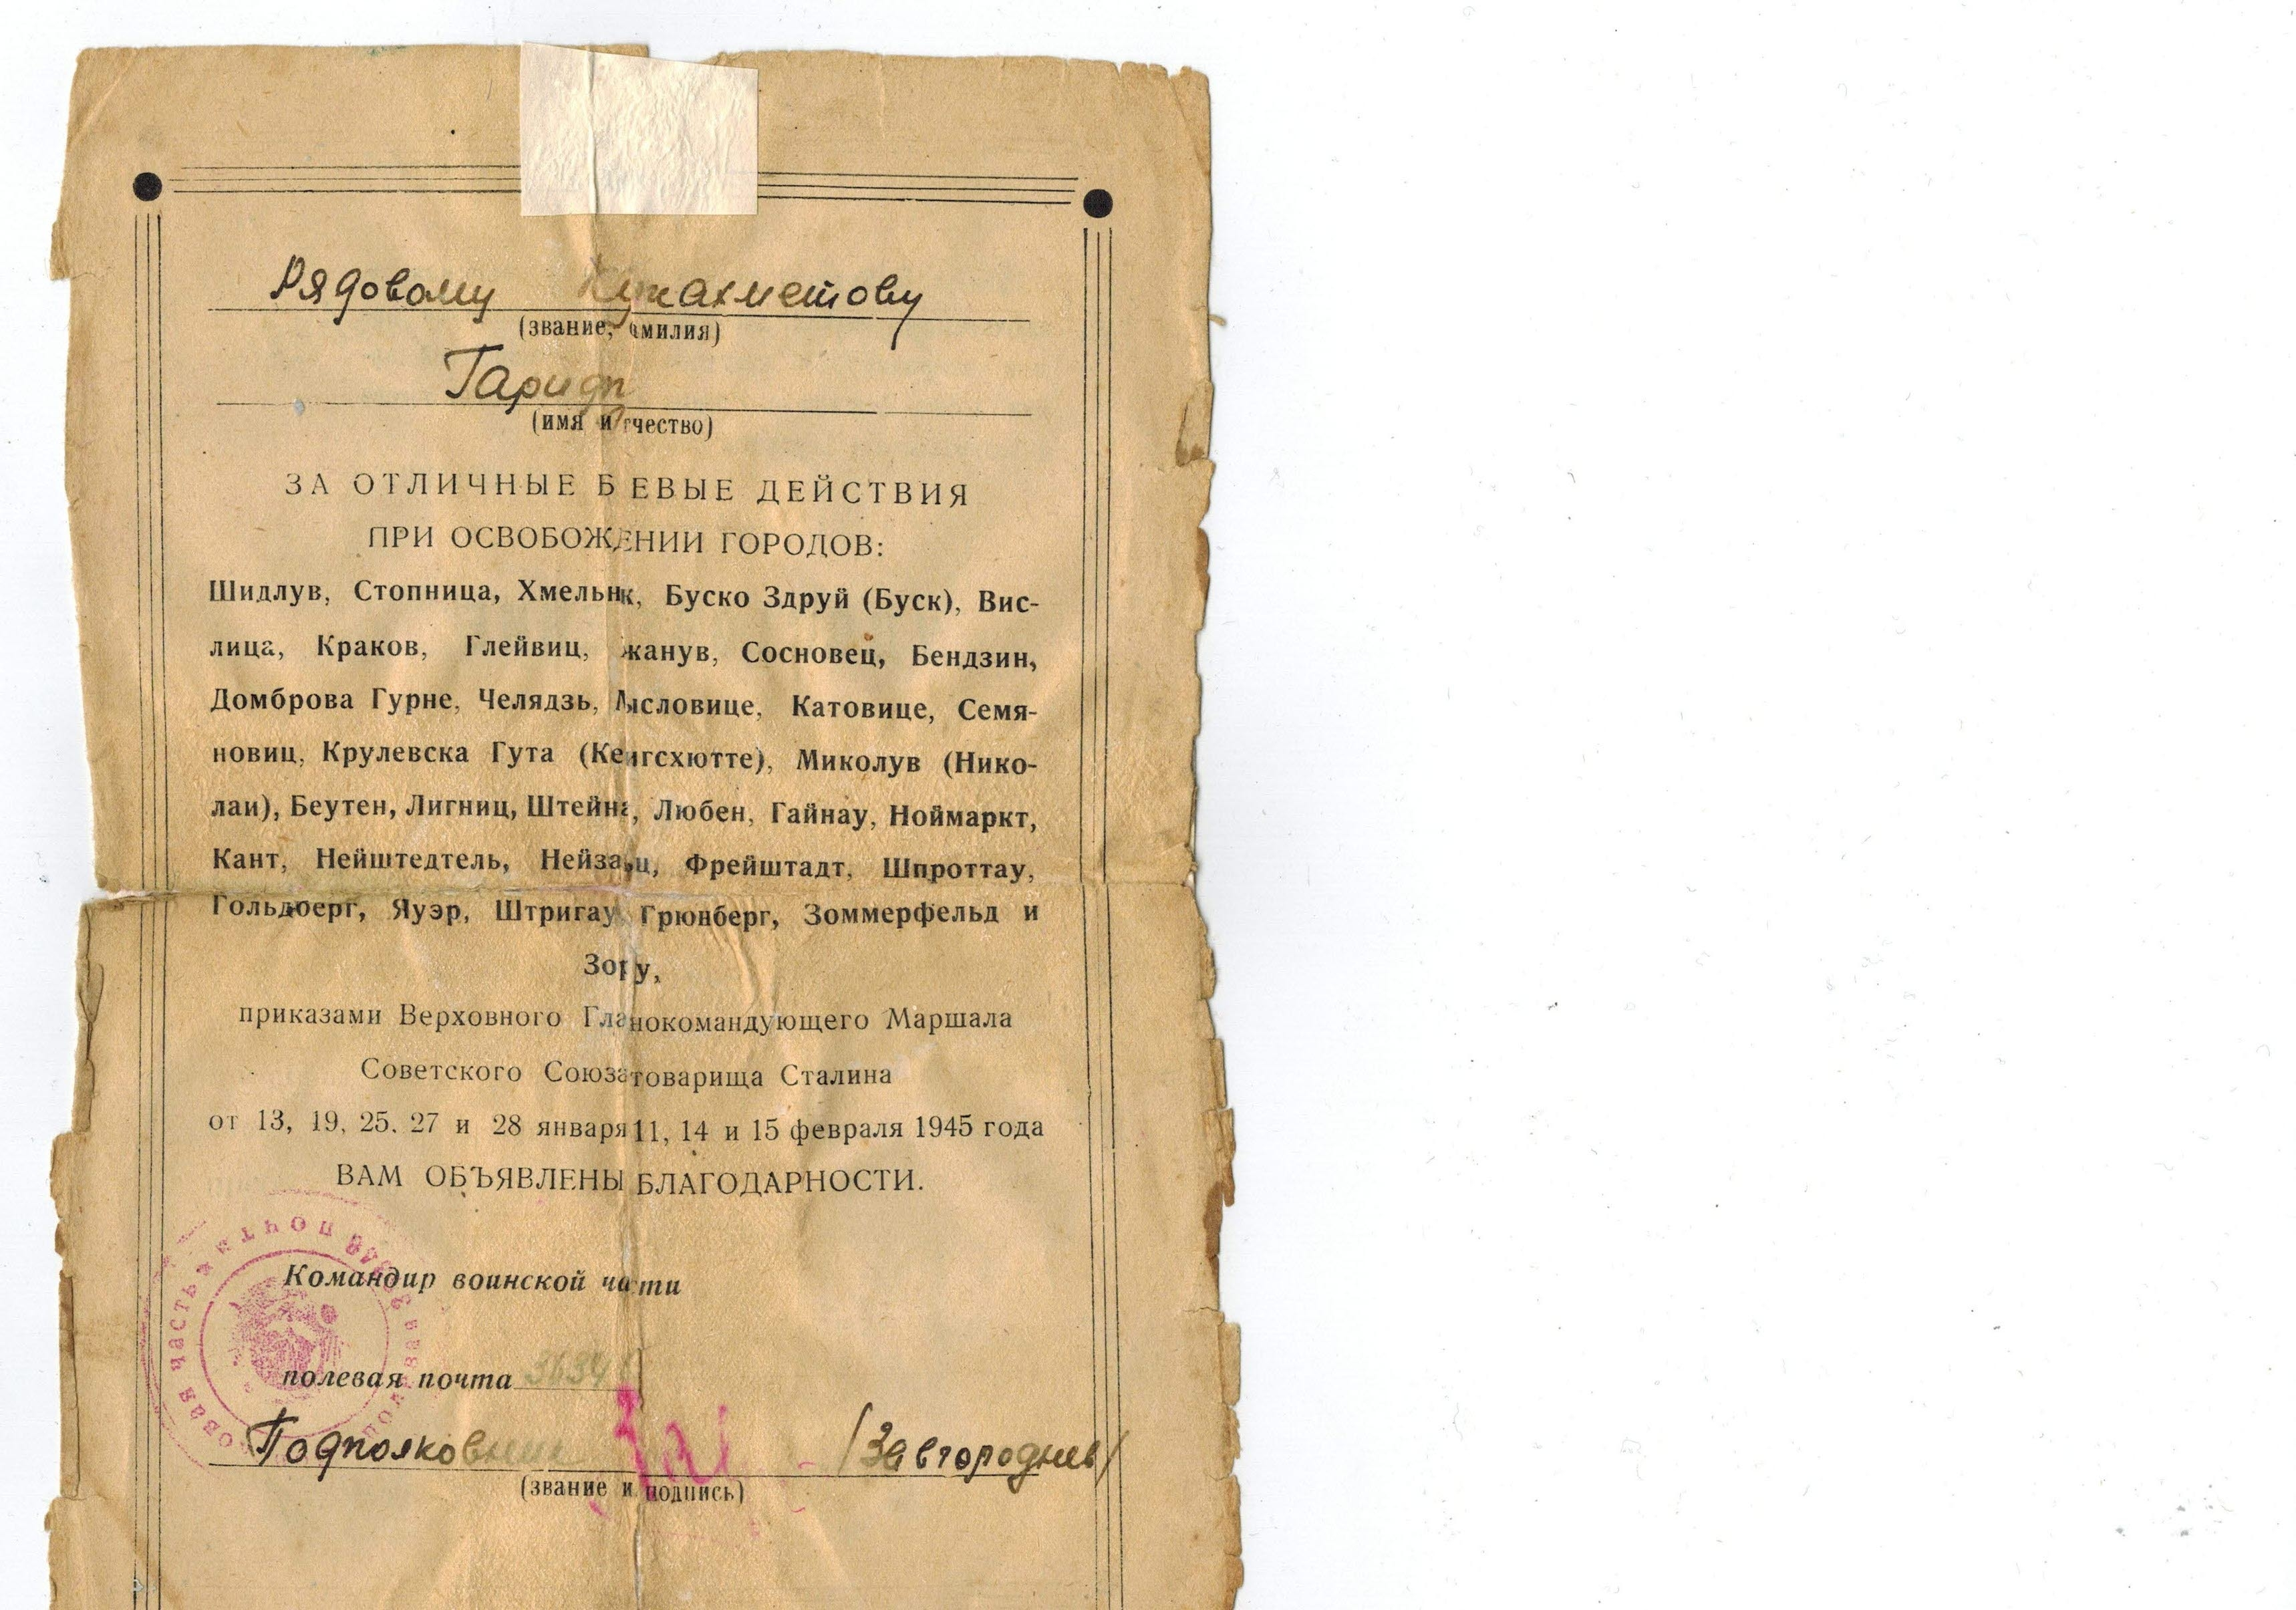 Рядовому Кужахметову
(звание, амилия)
Гарифу
(имя и тчество)
ЗА ОТЛИЧНЫЕ Б ЕВЫЕ ДЕЙСТВИЯ
ПРИ ОСВОБОЖДЕНИИ ГОРОДОВ:
Шидлув, Стопница, Хмельник, Буско Здруй (Буск), Вис-
лица, Краков, Глейвиц, жанув, Сосновец, Бендзин,
Домброва Гурне, Челядзь, Мысловице, Катовице, Семя-
новиц, Крулевска Гута (Кенигсхютте), Миколув (Нико-
лаи), Беутен, Лигниц, Штейна, Любен, Гайнау, Ноймаркт,
Кант, Нейштедтель, Нейзальц, Фрейштадт, Шпроттау,
Гольдберг, Яуэр, Штригау Грюнберг, Зоммерфельд и
Зорау,
приказами Верховного Главнокомандующего Маршала
Советского Союза товарища Сталина
от 13, 19, 25, 27 и 28 января 11, 14 и 15 февраля 1945 года
ВАМ ОБЪЯВЛЕНЫ БЛАГОДАРНОСТИ.
Командир воинской части
полевая почта
Подполковник (Завгороднев)
(звание и подпись)